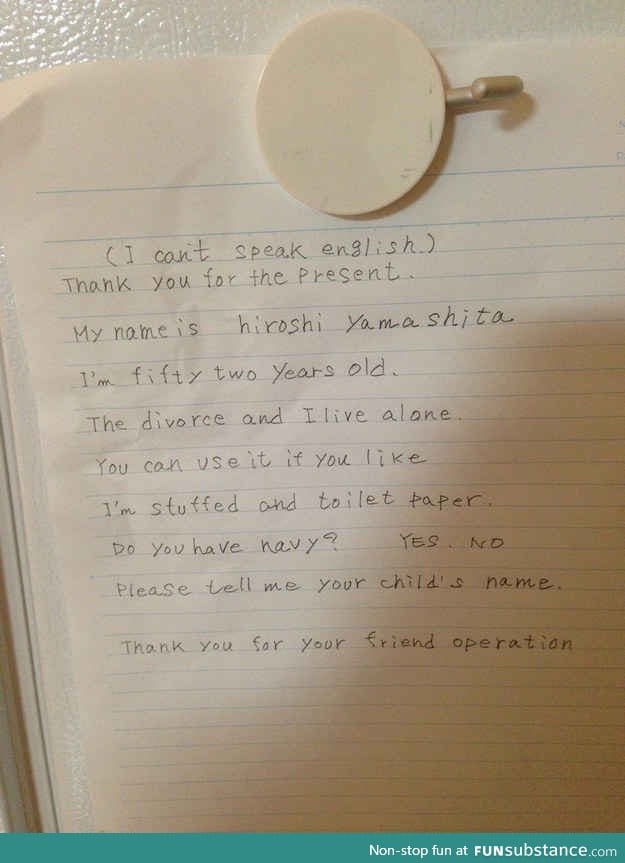 (I can't speak english.)
Thank you for the Present.
My name is hiroshi Yamashita
I'm fifty two years old.
The divorce and I live alone.
You can use it if you like
I'm stuffed and toilet paper.
Do you have navy? YES. NO
Please tell me your child's name.
Thank you for your friend operation
Non-stop fun at FUNsubstance.com